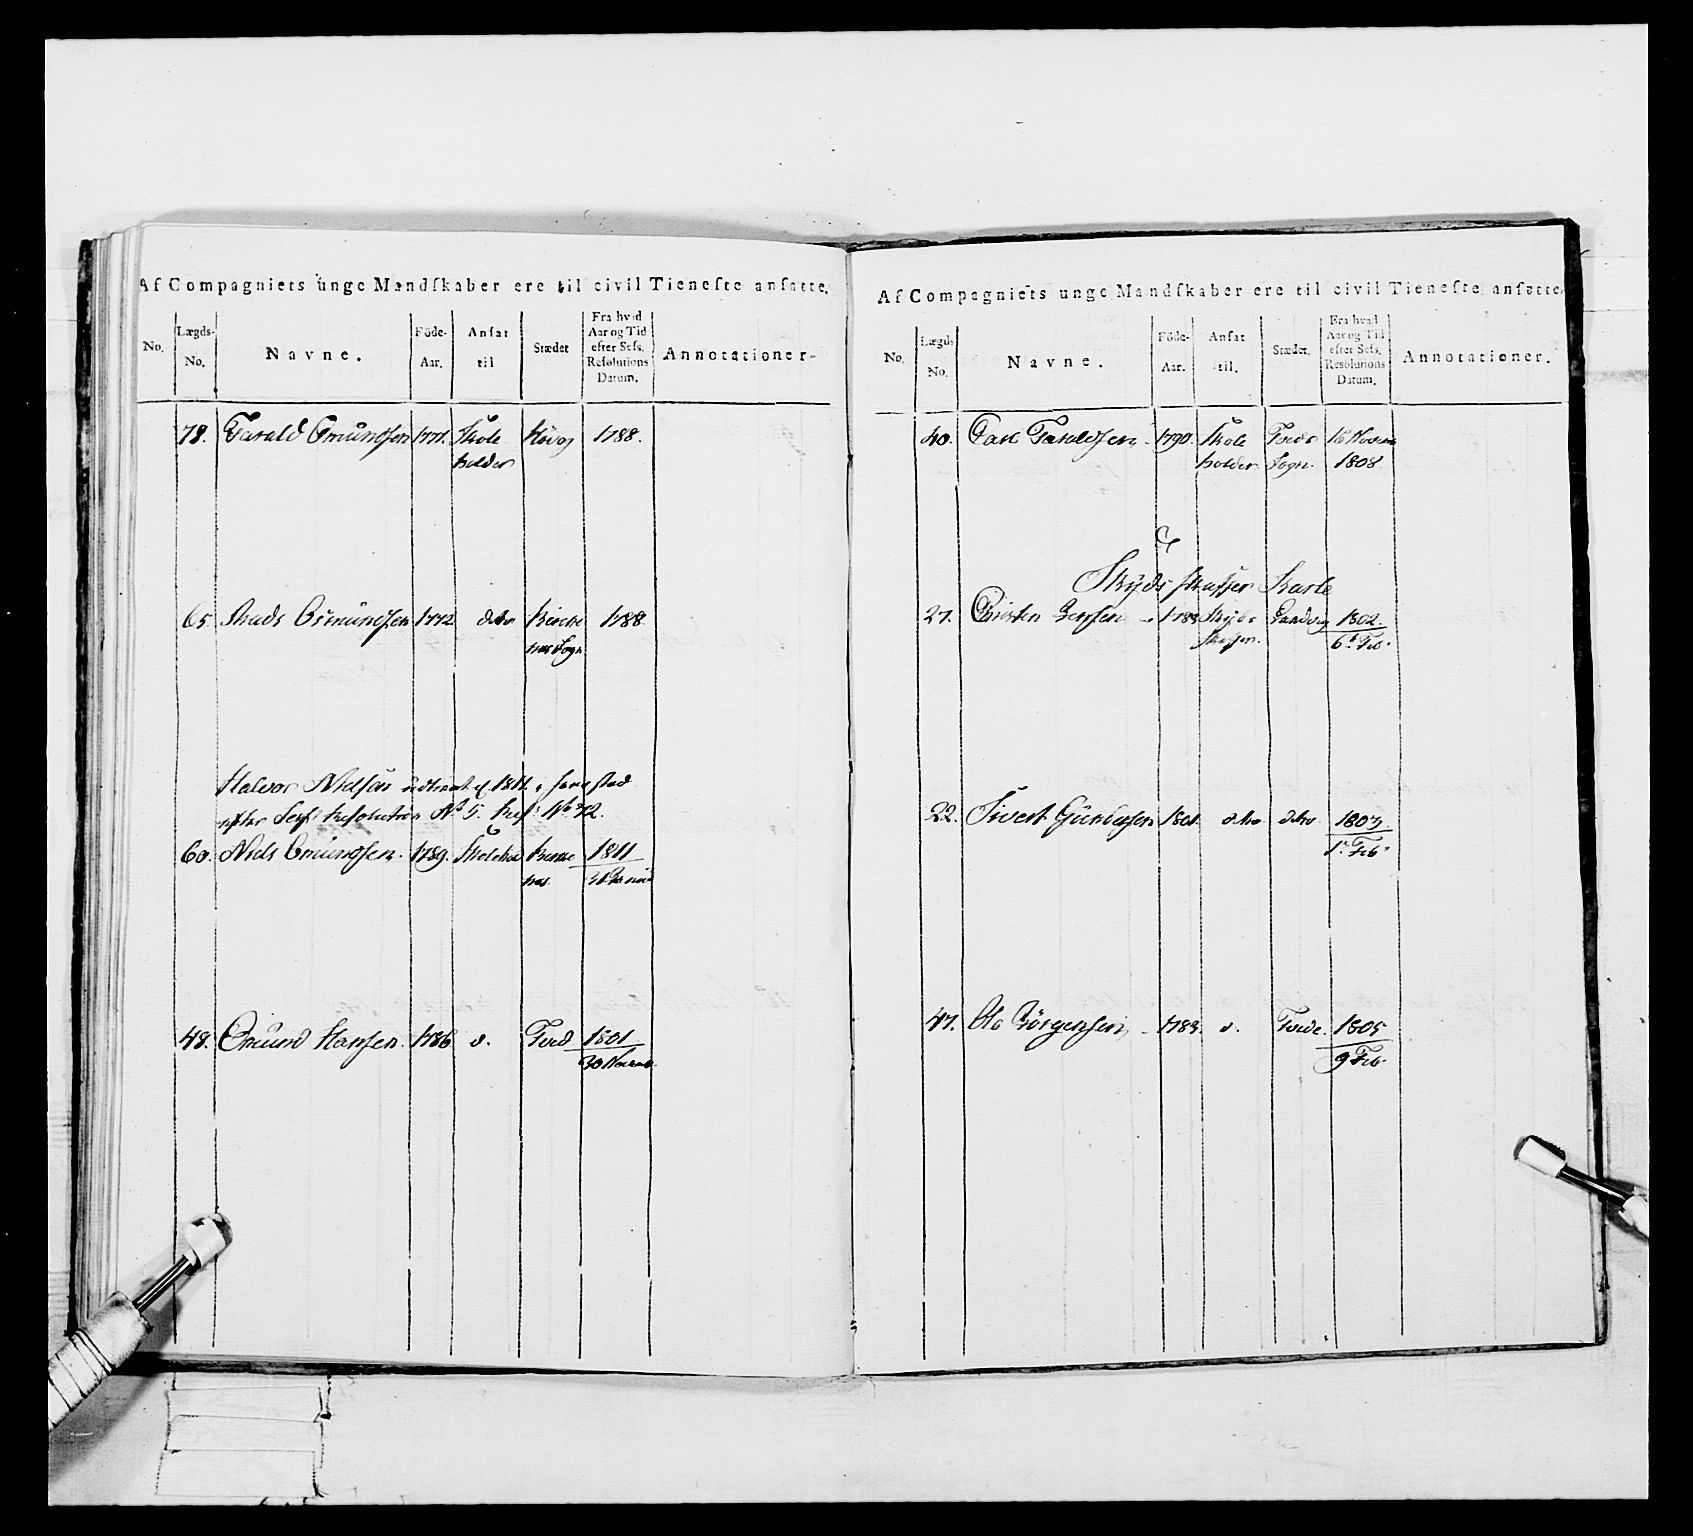 Af Compagniets unge Mandſkaber ere til civil Tieneſte anſatte.
No. Lægds-No. Navne. Föde-Aar. Anſat til Stædet Fra hvad Aar og Tid efter Sesſ. Reſolutions Datum. Annotationer.
78. Tarald Omundsen 1771. Skole Høvog 1788.
holder
65. Mads Osmundsen 1772 ditto Birche 1788
nes Sogn
Halvor Nielsen udtient 1811 i hans sted
efter Sess: Resolution No 5.
60. Niels Omundsen. 1789. Skoleh: Birke 1811
nes
48. Omund Hansen. 1786 d. Tved 1801
30 Novemb.
Af Compagniets unge Mandſkaber ere til civil Tieneſte anſatte.
No. Lægds No. Navne. Föde-Aar. Anſat til. Stædet. Fra hvad Aar og Tid efter Sesſ. Resolutions Datum. Annotationer.
40. Carl Taraldsen 1790. Skole Tveds 16 Novem
holder Sogn. 1808
Skyds skaffer Karle
27. Christen Jensen 1788 Skyds Randvig 1802.
skaffer. 6t Feb
22. Sivert Gunbersen 1801. ditto ditto 1803.
1t Feb
47. Ole Börgensen 1783. d. Tvede. 1805
9 Feb